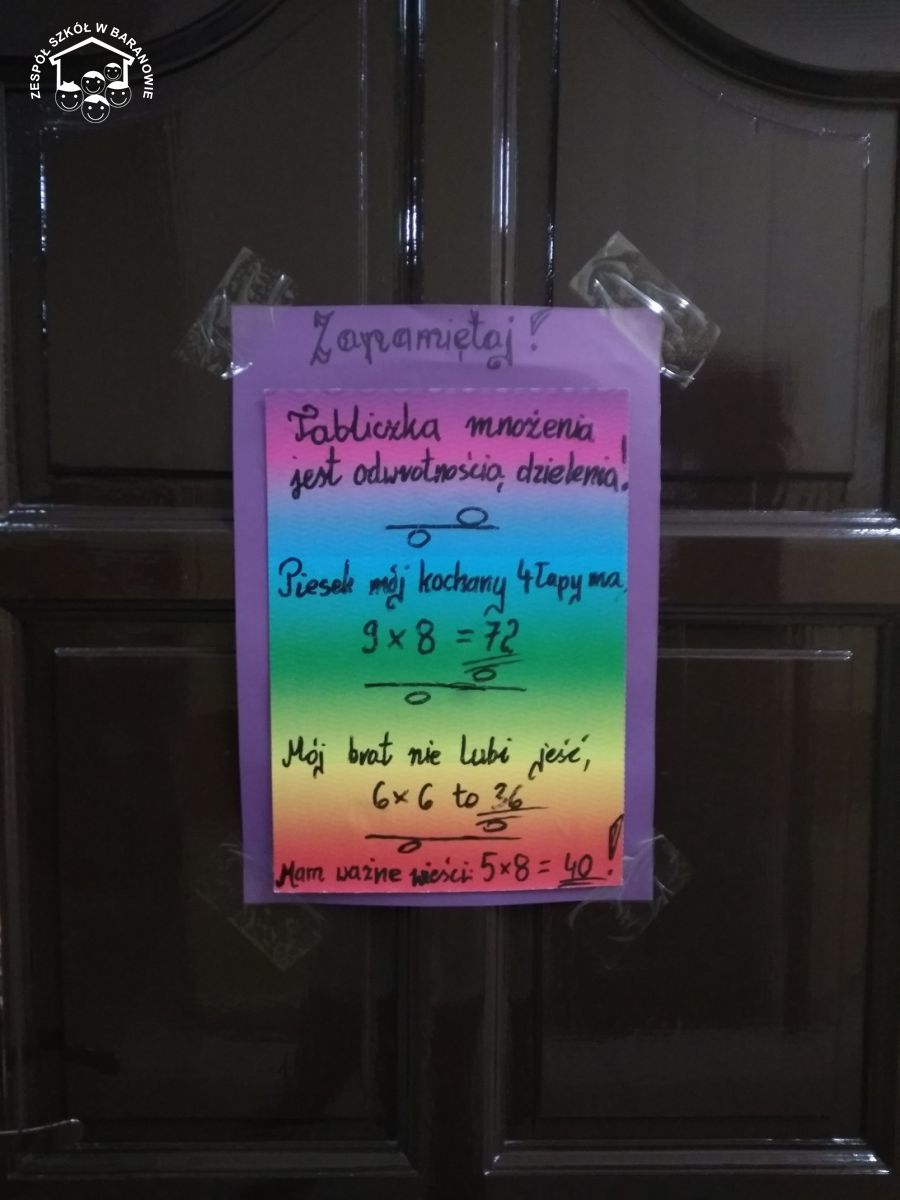 ZESPÓŁ SZKÓŁ W BARANOWIE
Zapamiętaj!
Tabliczka mnożenia
jest odwrotnością dzielenia!
Piesek mój kochany 4 łapy ma,
9 x 8 = 72
Mój brat nie lubi jeść,
6 x 6 to 36
Mam ważne wieści: 5 x 8 = 40!